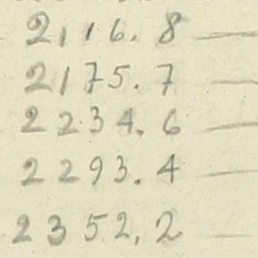 2116.8 —
2175.7 —
2234.6 —
2293.4 —
2352.2 —